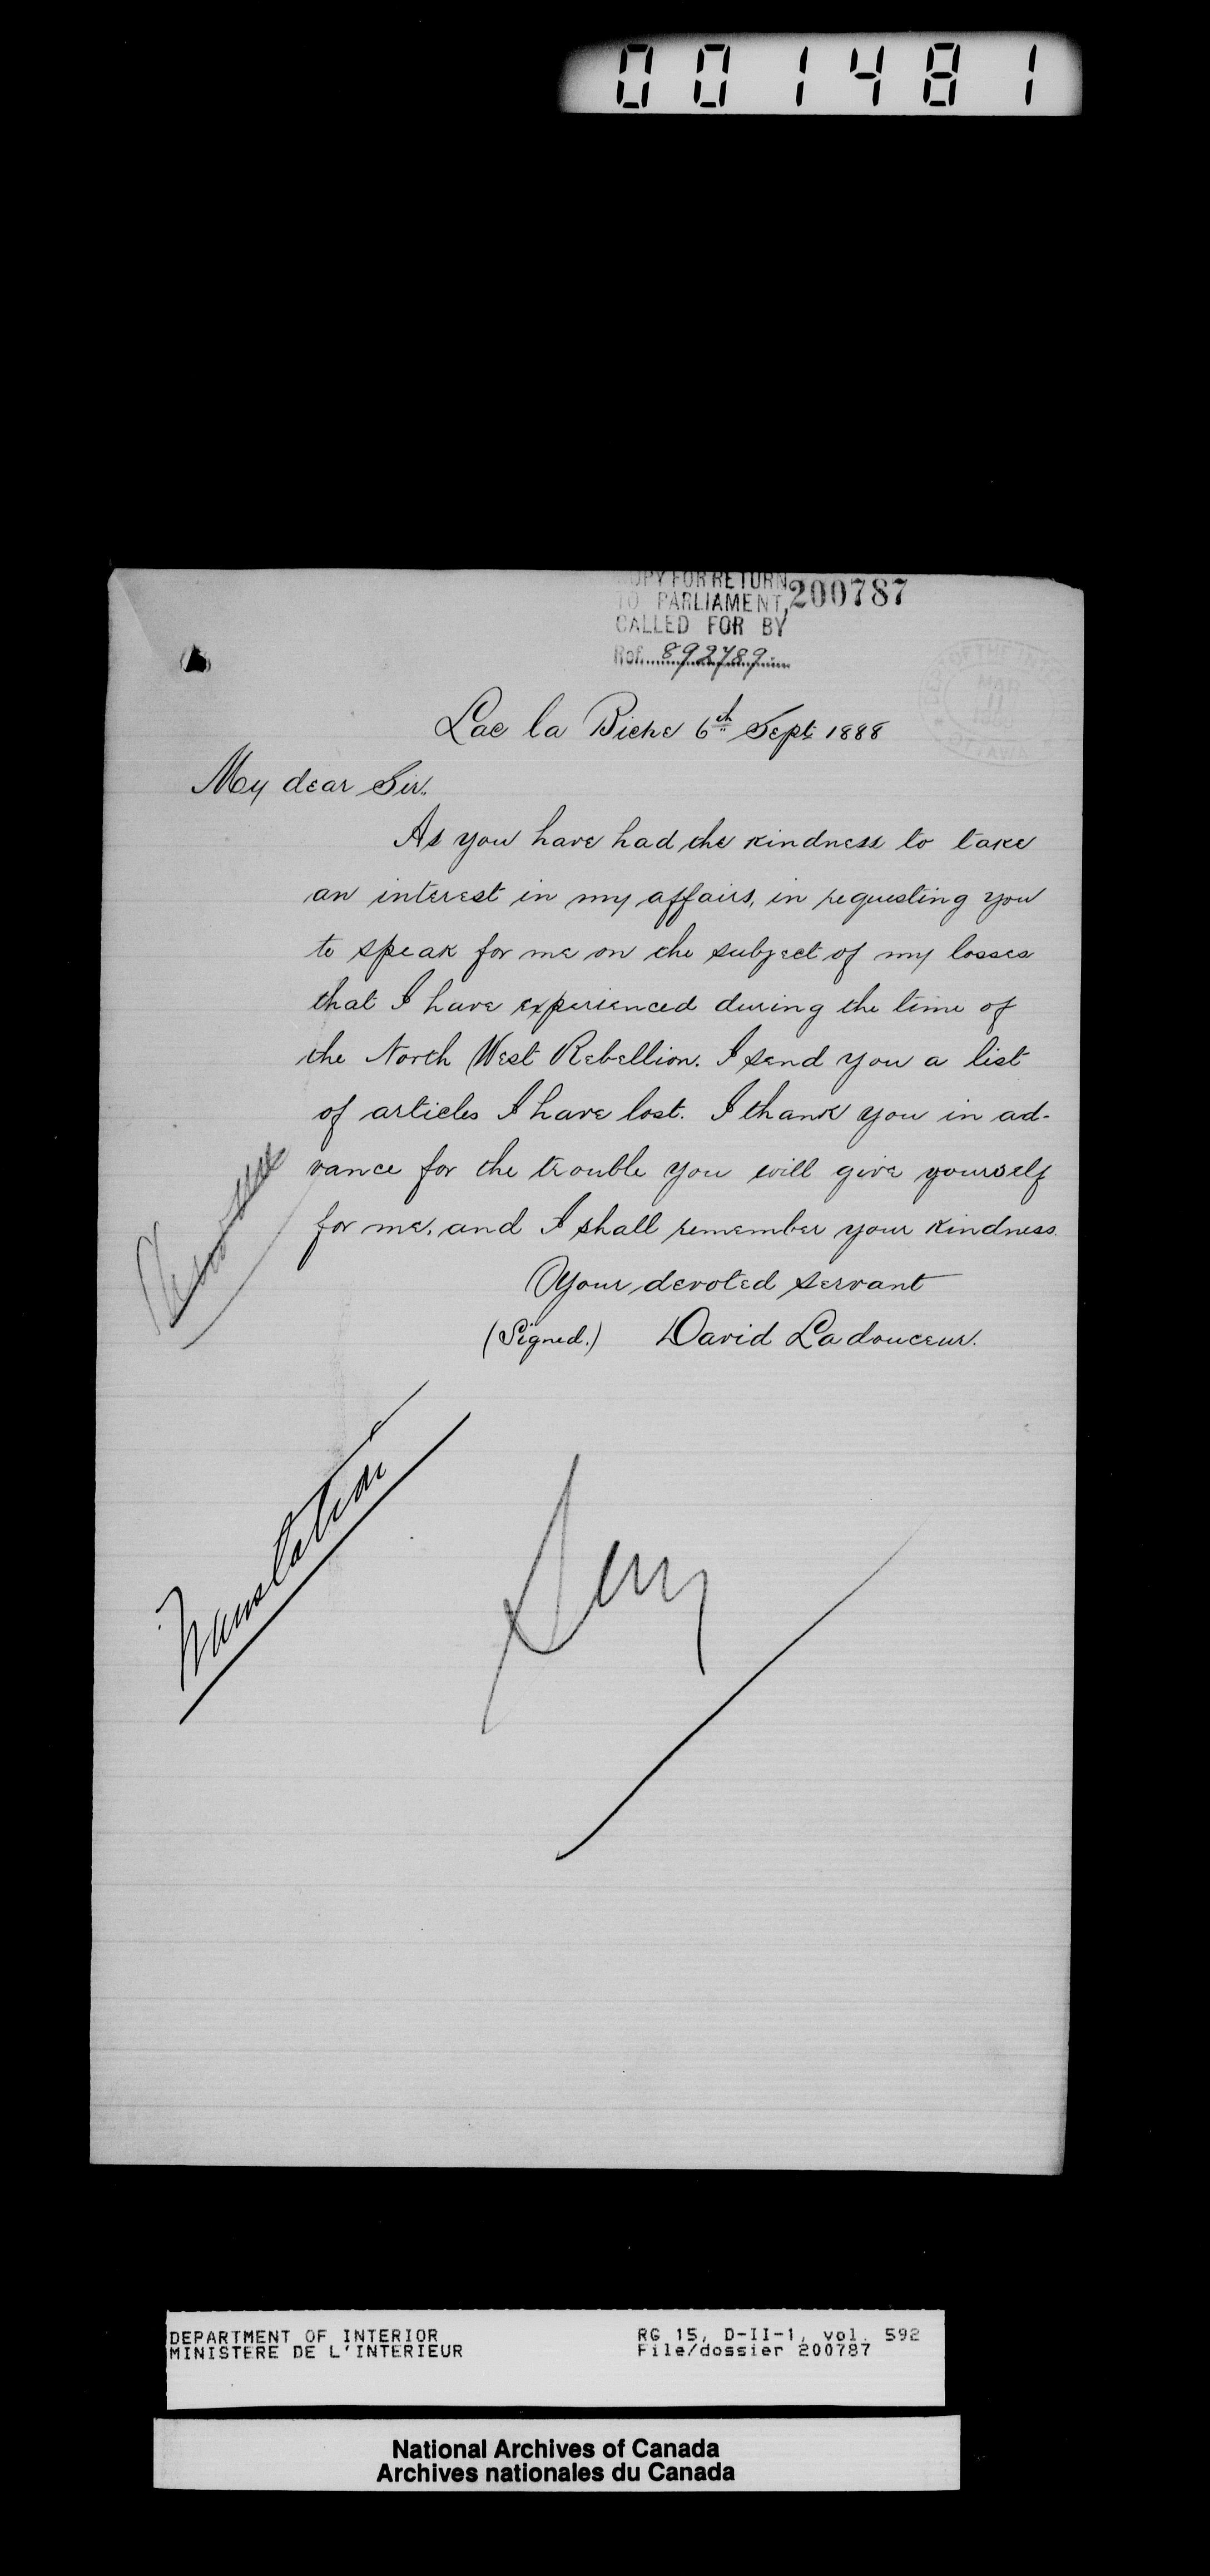 001481
COPY FOR RETURN
TO PARLIAMENT, 200787
CALLED FOR BY
Ref. 892789
DEPT OF THE INTERIOR
MAR
11
OTTAWA
Lac la Biche 6th Sept. 1888
My dear Sir.
As you have had the kindness to take
an interest in my affairs, in requesting you
to speak for me on the subject of my losses
that I have experienced during the time of
the North West Rebellion. I send you a list
of articles I have lost. I thank you in ad-
vance for the trouble you will give yourself
for me, and I shall remember your kindness.
Your devoted servant
(Signed.) David Ladouceur.
Translation
DEPARTMENT OF INTERIOR
MINISTERE DE L'INTERIEUR
RG 15, D-II-1, vol. 592
File/dossier 200787
National Archives of Canada
Archives nationales du Canada